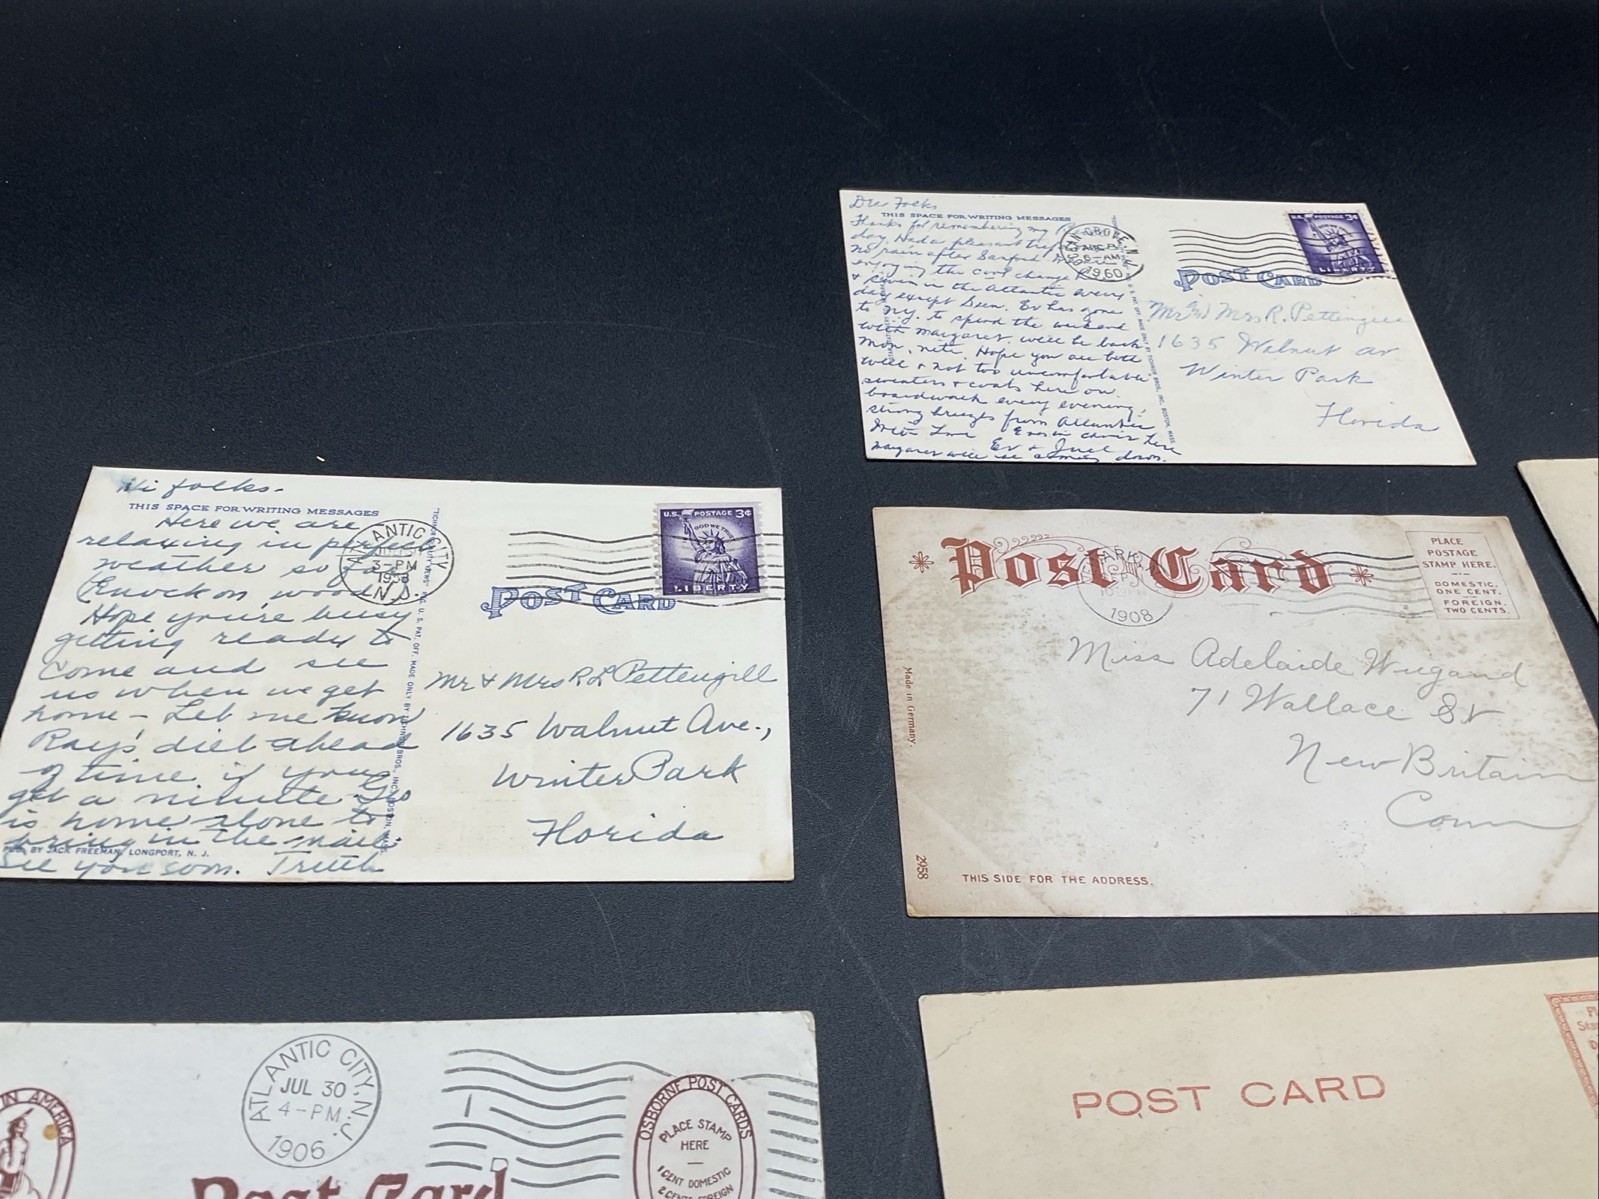 Folks
THIS SPACE FOR WRITING MESSAGES
Thanks for remembering my
day. Had a pleasant trip
no rain after Sanford
enjoying the cool change
in the Atlantic every
day except Sun. Ev has gone
to N.J. to spend the weekend
with Margaret. Will be back
Mon. nite. Hope you are both
well & not too uncomfortable
sweaters & coats here on
boardwalk every evening,
strong breezes from Atlantic
With Love
Ev &
down.
GROVE, N.J.
AUG
6-AM
1960
U.S. POSTAGE 3¢
LIBERTY
POST CARD
Mr. and Mrs R. Pettengill
1635 Walnut av.
Winter Park
Florida
Hi folks-
THIS SPACE FOR WRITING MESSAGES
Here we are
relaxing in perfect
weather so far
Knock on wood
Hope you're busy
getting ready to
come and see
us when we get
home - Let me know
Ray's diet ahead
of time, if you
get a minute Geo
is home alone to
bring in the mail.
See you soon.
PUB. BY JACK FREEMAN, LONGPORT, N. J.
ATLANTIC CITY
3-PM
1958
N.J.
U.S. POSTAGE 3¢
IN GOD WE TRUST
LIBERTY
POST CARD
Mr & Mrs R L Pettengill
1635 Walnut Ave.,
Winter Park
Florida
Post Card
PARK
1908
PLACE
POSTAGE
STAMP HERE.
DOMESTIC,
ONE CENT.
FOREIGN,
TWO CENTS.
Miss Adelaide Wigand
71 Wallace St
New Britain
Conn
Made in Germany.
2958
THIS SIDE FOR THE ADDRESS.
IN AMERICA
ATLANTIC CITY, N.J.
JUL 30
4-PM
1906
OSBORNE POST CARDS
PLACE STAMP
HERE
1 CENT DOMESTIC
2 CENTS FOREIGN
Post Card
POST CARD